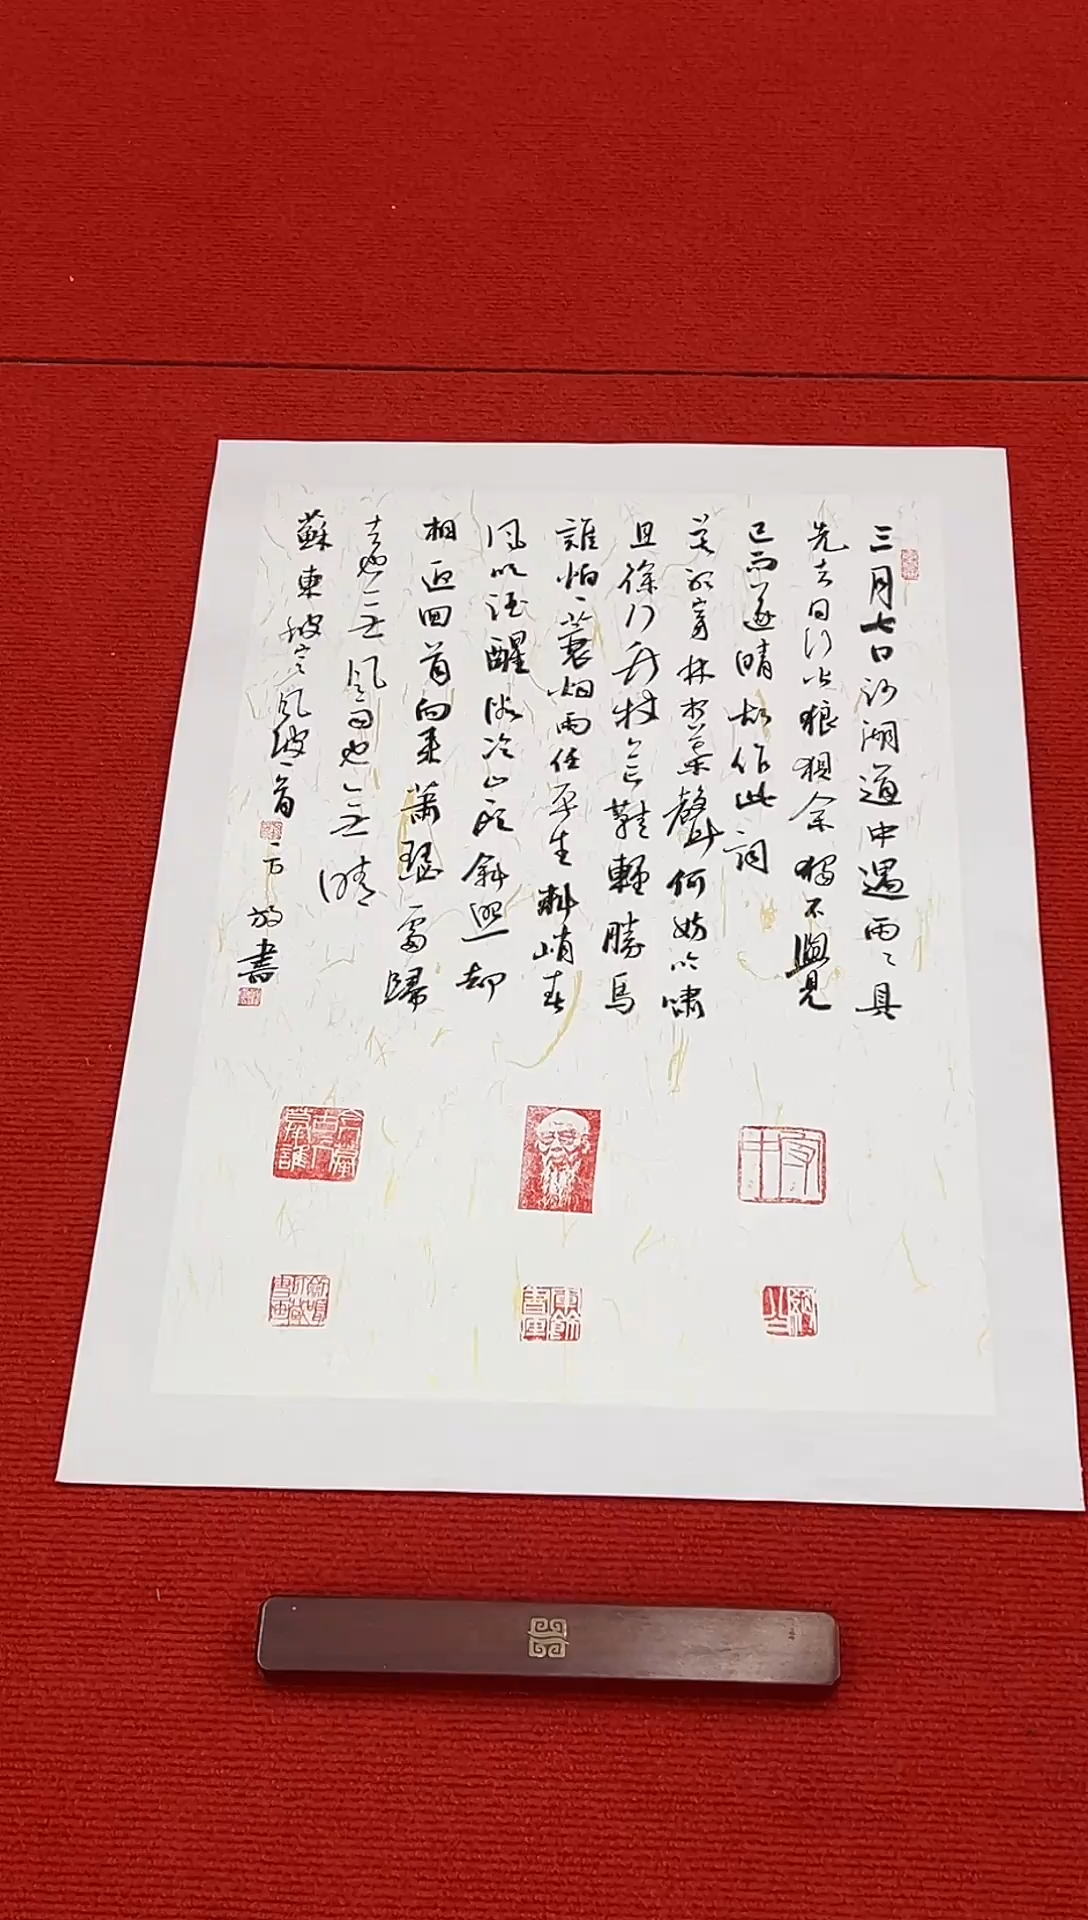 三月七日沙湖道中遇雨々具
先去同行皆狼狽余獨不覺
已而遂晴故作此詞
莫聽穿林打葉聲何妨吟嘯
且徐行竹杖芒鞋輕勝馬
誰怕一蓑烟雨任平生料峭春
風吹酒醒微冷山頭斜照却
相迎回首向來蕭瑟處歸
去也無風雨也無晴
蘇東坡定風波一首
方放書